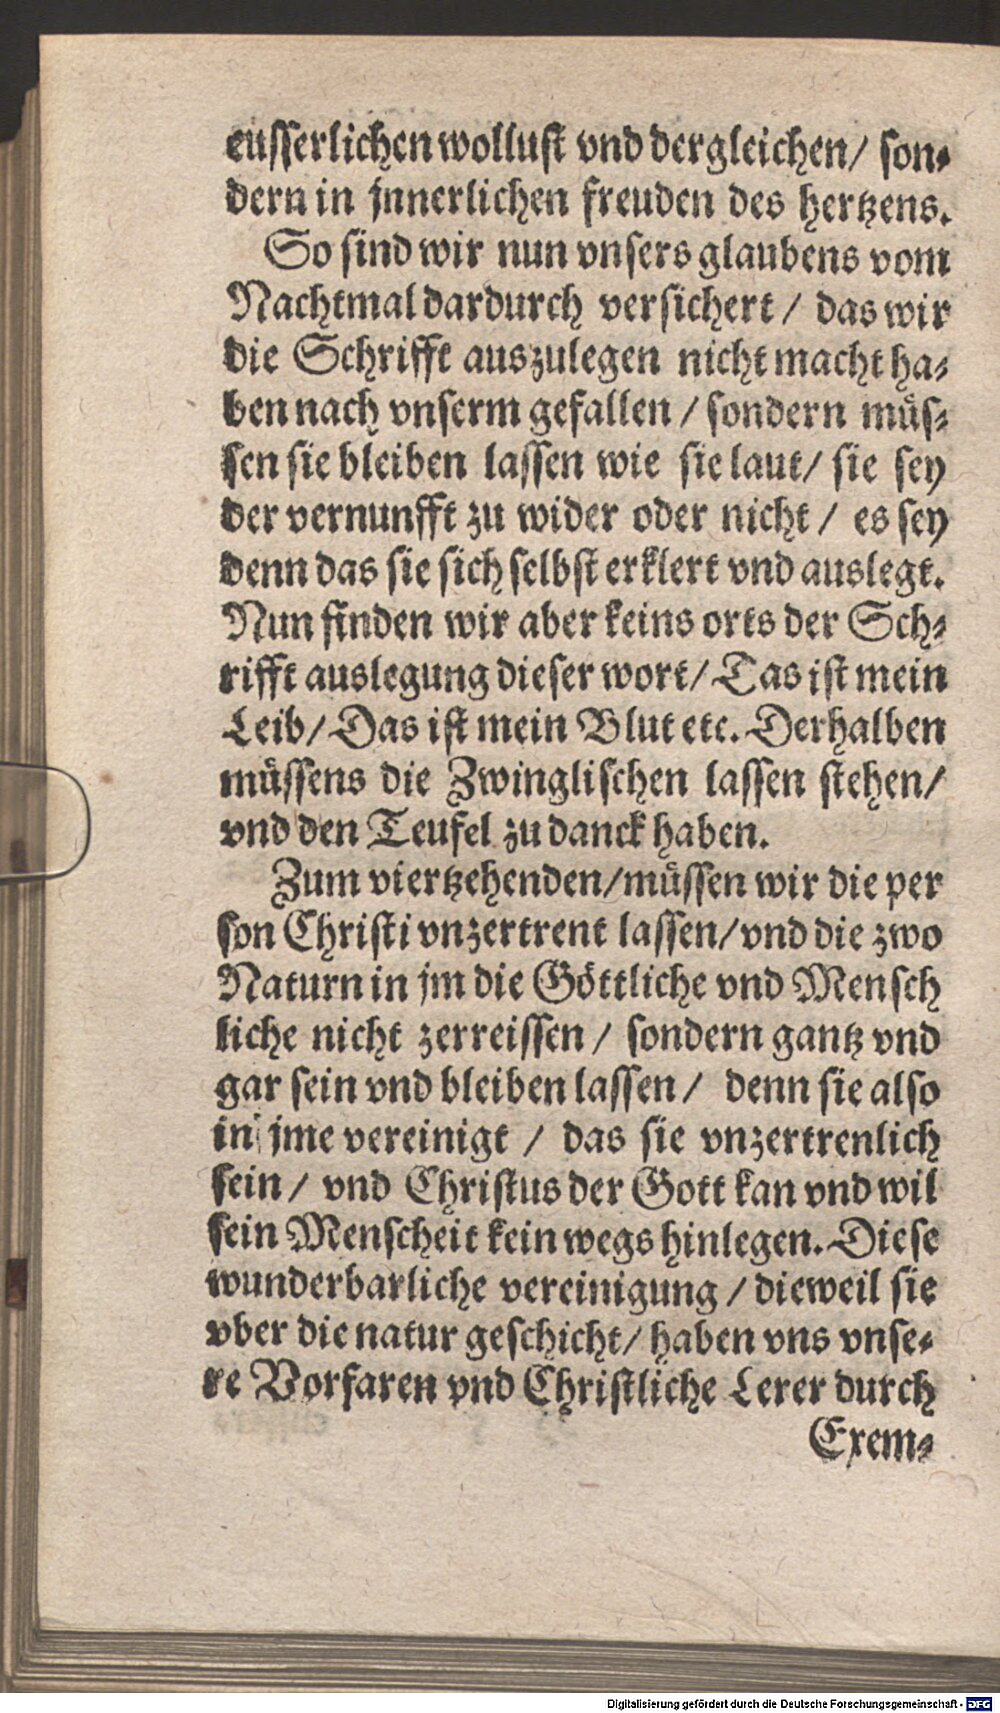 eusserlichen wollust vnd dergleichen/ son-
dern in jnnerlichen freuden des hertzens.
So sind wir nun vnsers glaubens vom
Nachtmal dardurch versichert / das wir
die Schrifft auszulegen nicht macht ha-
ben nach vnserm gefallen / sondern müs-
sen sie bleiben lassen wie sie laut/ sie sey
der vernunfft zu wider oder nicht / es sey
denn das sie sich selbst erklert vnd auslegt.
Nun finden wir aber keins orts der Sch-
rifft auslegung dieser wort/ Das ist mein
Leib/ Das ist mein Blut etc. Derhalben
müssens die Zwinglischen lassen stehen/
vnd den Teufel zu danck haben.
Zum viertzehenden/müssen wir die per
son Christi vnzertrent lassen/vnd die zwo
Naturn in jm die Göttliche vnd Mensch
liche nicht zerreissen / sondern gantz vnd
gar sein vnd bleiben lassen / denn sie also
in jme vereinigt / das sie vnzertrenlich
sein / vnd Christus der Gott kan vnd wil
sein Menscheit kein wegs hinlegen. Diese
wunderbarliche vereinigung / dieweil sie
vber die natur geschicht/ haben vns vnse-
re Vorfaren vnd Christliche Lerer durch
Exem-
Digitalisierung gefördert durch die Deutsche Forschungsgemeinschaft - DFG